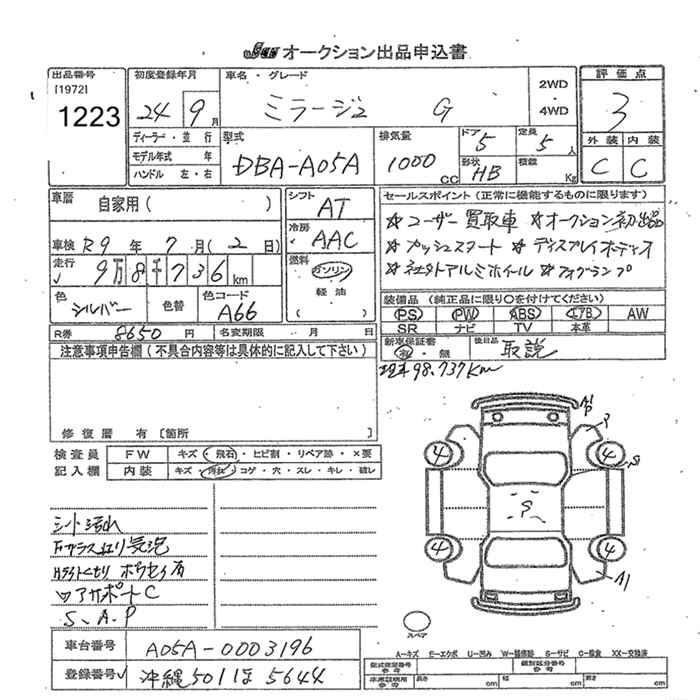 JU オークション出品申込書
出品番号 初度登録年月 車名・グレード 2WD・4WD 評価点
[1972]
1223 24 9月 ミラージュ G 3
ディーラー・並行 型式 排気量 ドア 5 定員 5人 外装 内装
モデル年式 年 DBA-A05A 1000cc 形状 HB 積載 Kg C C
ハンドル 左・右
車歴 自家用( ) シフト AT セールスポイント(正常に機能するものに限ります)
☆ユーザー買取車 ☆オークション初出品
車検 R9年7月(2日) 冷房 AAC ☆プッシュスタート ☆ディスプレイオーディオ
走行 9万8千736km 燃料 ガソリン 軽油 ( ) ☆社外アルミホイール ☆フォグランプ
色 シルバー 色替 色コード A66 装備品(純正品に限り○を付けてください)
PS PW ABS エアB AW
SR ナビ TV 本革
R券 8650円 名変期限 月 日 新車保証書 有・無 後日品 取説
注意事項申告欄(不具合内容等は具体的に記入して下さい)
現車98.737Km
修復歴 有[箇所 ]
検査員 FW キズ・飛石・ヒビ割・リペア跡・×要
記入欄 内装 キズ・汚れ・コゲ・穴・スレ・キレ・破レ
A1
P
S
4 4
S
4 4
A1
シート汚れ
Fガラス廻り気泡
Hライトくもり ホウセイ有
コアサポートC
S.A.P
スペア
車台番号 A05A-0003196
A-キズ E-エクボ U-凹み W-補修跡 S-サビ C-腐食 XX-交換済
登録番号 沖縄501ほ5644
型式指定番号 参考 類別区分番号 参考
車庫証明用 参考 長さ cm 幅 cm 高さ cm